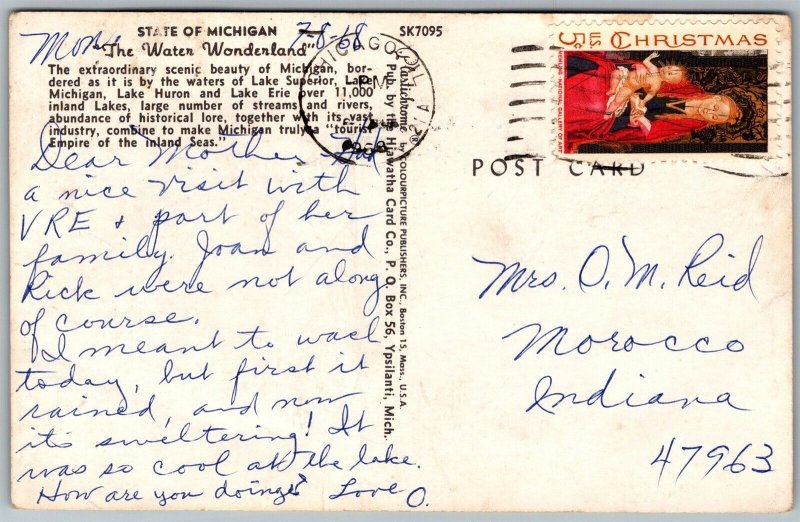 STATE OF MICHIGAN
"The Water Wonderland"
The extraordinary scenic beauty of Michigan, bor-
dered as it is by the waters of Lake Superior, Lake
Michigan, Lake Huron and Lake Erie over 11,000
inland Lakes, large number of streams and rivers,
abundance of historical lore, together with its vast
industry, combine to make Michigan truly a "tourist
Empire of the Inland Seas."
SK7095
Mon. 7-8-68
Dear Mother, Had
a nice visit with
VRE & part of her
family. Joan and
Rick were not along
of course.
I meant to wash
today, but first it
rained, and now
it's sweltering! It
was so cool at the lake.
How are you doing? Love O.
Plastichrome ® by COLOURPICTURE PUBLISHERS, INC., Boston 15, Mass., U.S.A.
Pub. by the Hiawatha Card Co., P. O. Box 56, Ypsilanti, Mich.
CHICAGO, IL
PM
1968
5c U.S. CHRISTMAS
MEMLING: NATIONAL GALLERY OF ART
POST CARD
Mrs. O. M. Reid
Morocco
Indiana
47963